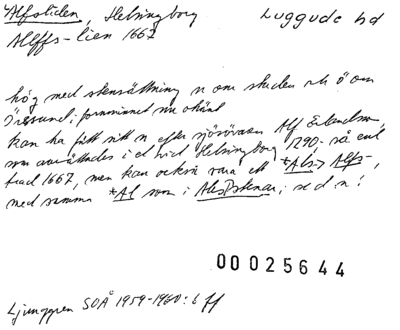 Alfstiden, Helsingborg Luggude hd
Allffs-lien 1667
hög med stensättning n om staden och ö om
Öresund; fornminnet nu okänt
kan ha fått sitt n efter sjörövaren Alf Erlandsson,
som avrättades i el vid Helsingborg 1290, så enl
trad 1667, men kan också vara ett *Als- > Alfs-,
med samma *Al som i Ales stenar; se d n!
00025644
Ljunggren SOÅ 1959-1960: 6 ff